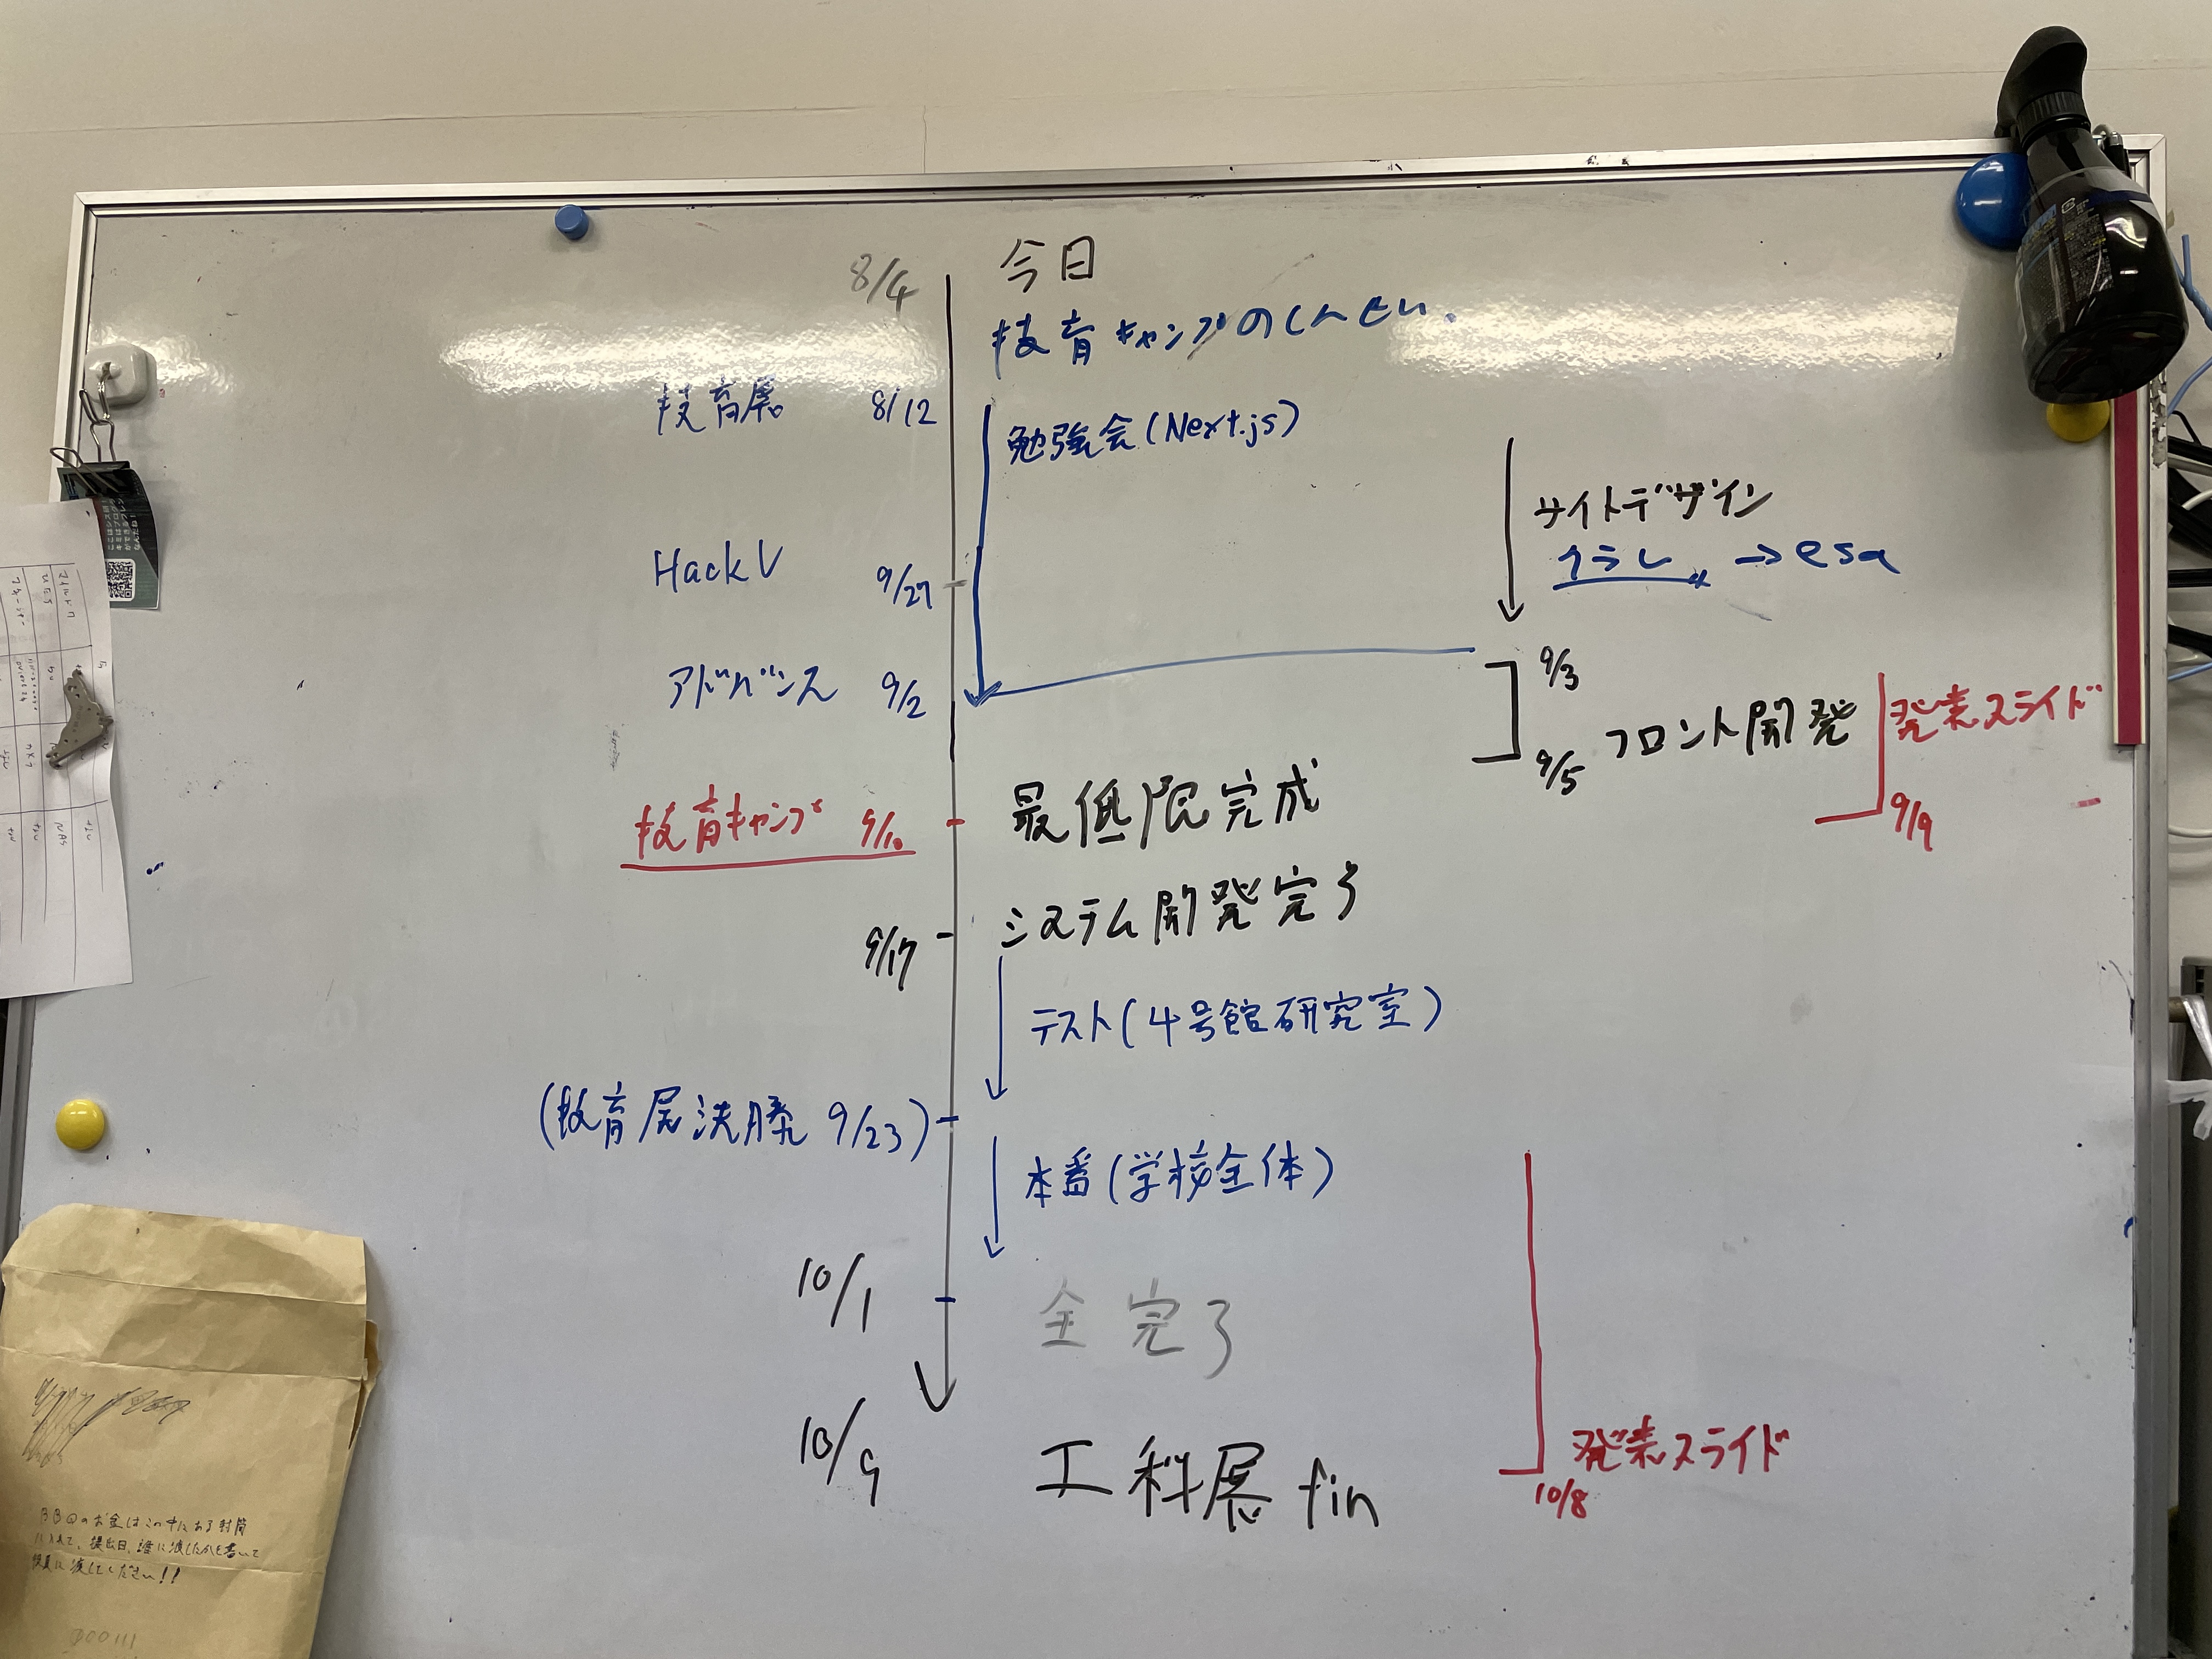 8/4 今日
技育キャンプのしんせい。
技育展 8/12
勉強会(Next.js)
サイトデザイン
→esa
HackV 9/27
アドバンス 9/2
9/3
フロント開発
9/5
発表スライド
9/9
技育キャンプ 9/10 最低限完成
9/17 システム開発完了
テスト(4号館研究室)
(技育展決勝 9/23)
本番(学校全体)
10/1 全完了
10/9 工科展 fin
発表スライド
10/8
BBQのお金はこの中にある封筒
に入れて、提出日、誰に渡したかを書いて
渡してください!!